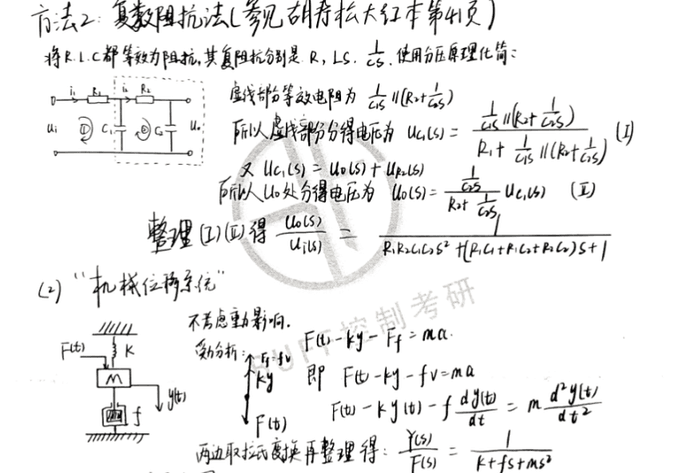 方法2: 复数阻抗法(参见胡寿松大红本第41页)
将R.L.C都等效为阻抗,其复阻抗分别是 R, LS, 1/CS, 使用分压原理化简:
i₁ R₁ i₂ R₂
ui Ⅰ C₁ Ⅱ C₂ uo
虚线部分等效电阻为 1/C₁S //(R₂+1/C₂S)
所以虚线部分分得电压为 Uc₁(s) = (1/C₁S //(R₂+1/C₂S)) / (R₁ + 1/C₁S //(R₂+1/C₂S)) (I)
又 Uc₁(s) = Uo(s) + UR₂(s)
所以 Uo处分得电压为 Uo(s) = (1/C₂S) / (R₂+1/C₂S) Uc₁(s) (Ⅱ)
整理(I)(Ⅱ)得 Uo(s)/Ui(s) = 1 / (R₁R₂C₁C₂S² + (R₁C₁+R₁C₂+R₂C₂)S + 1)
(2) "机械位移系统"
不考虑重力影响.
受力分析: F(t) - ky - Ff = ma.
即 F(t) - ky - fv = ma
F(t) - ky(t) - f dy(t)/dt = m d²y(t)/dt²
F(t) K M f y(t)
Ff=fv
ky
F(t)
两边取拉氏变换再整理得: Y(s)/F(s) = 1/(k+fs+ms²)
控制考研